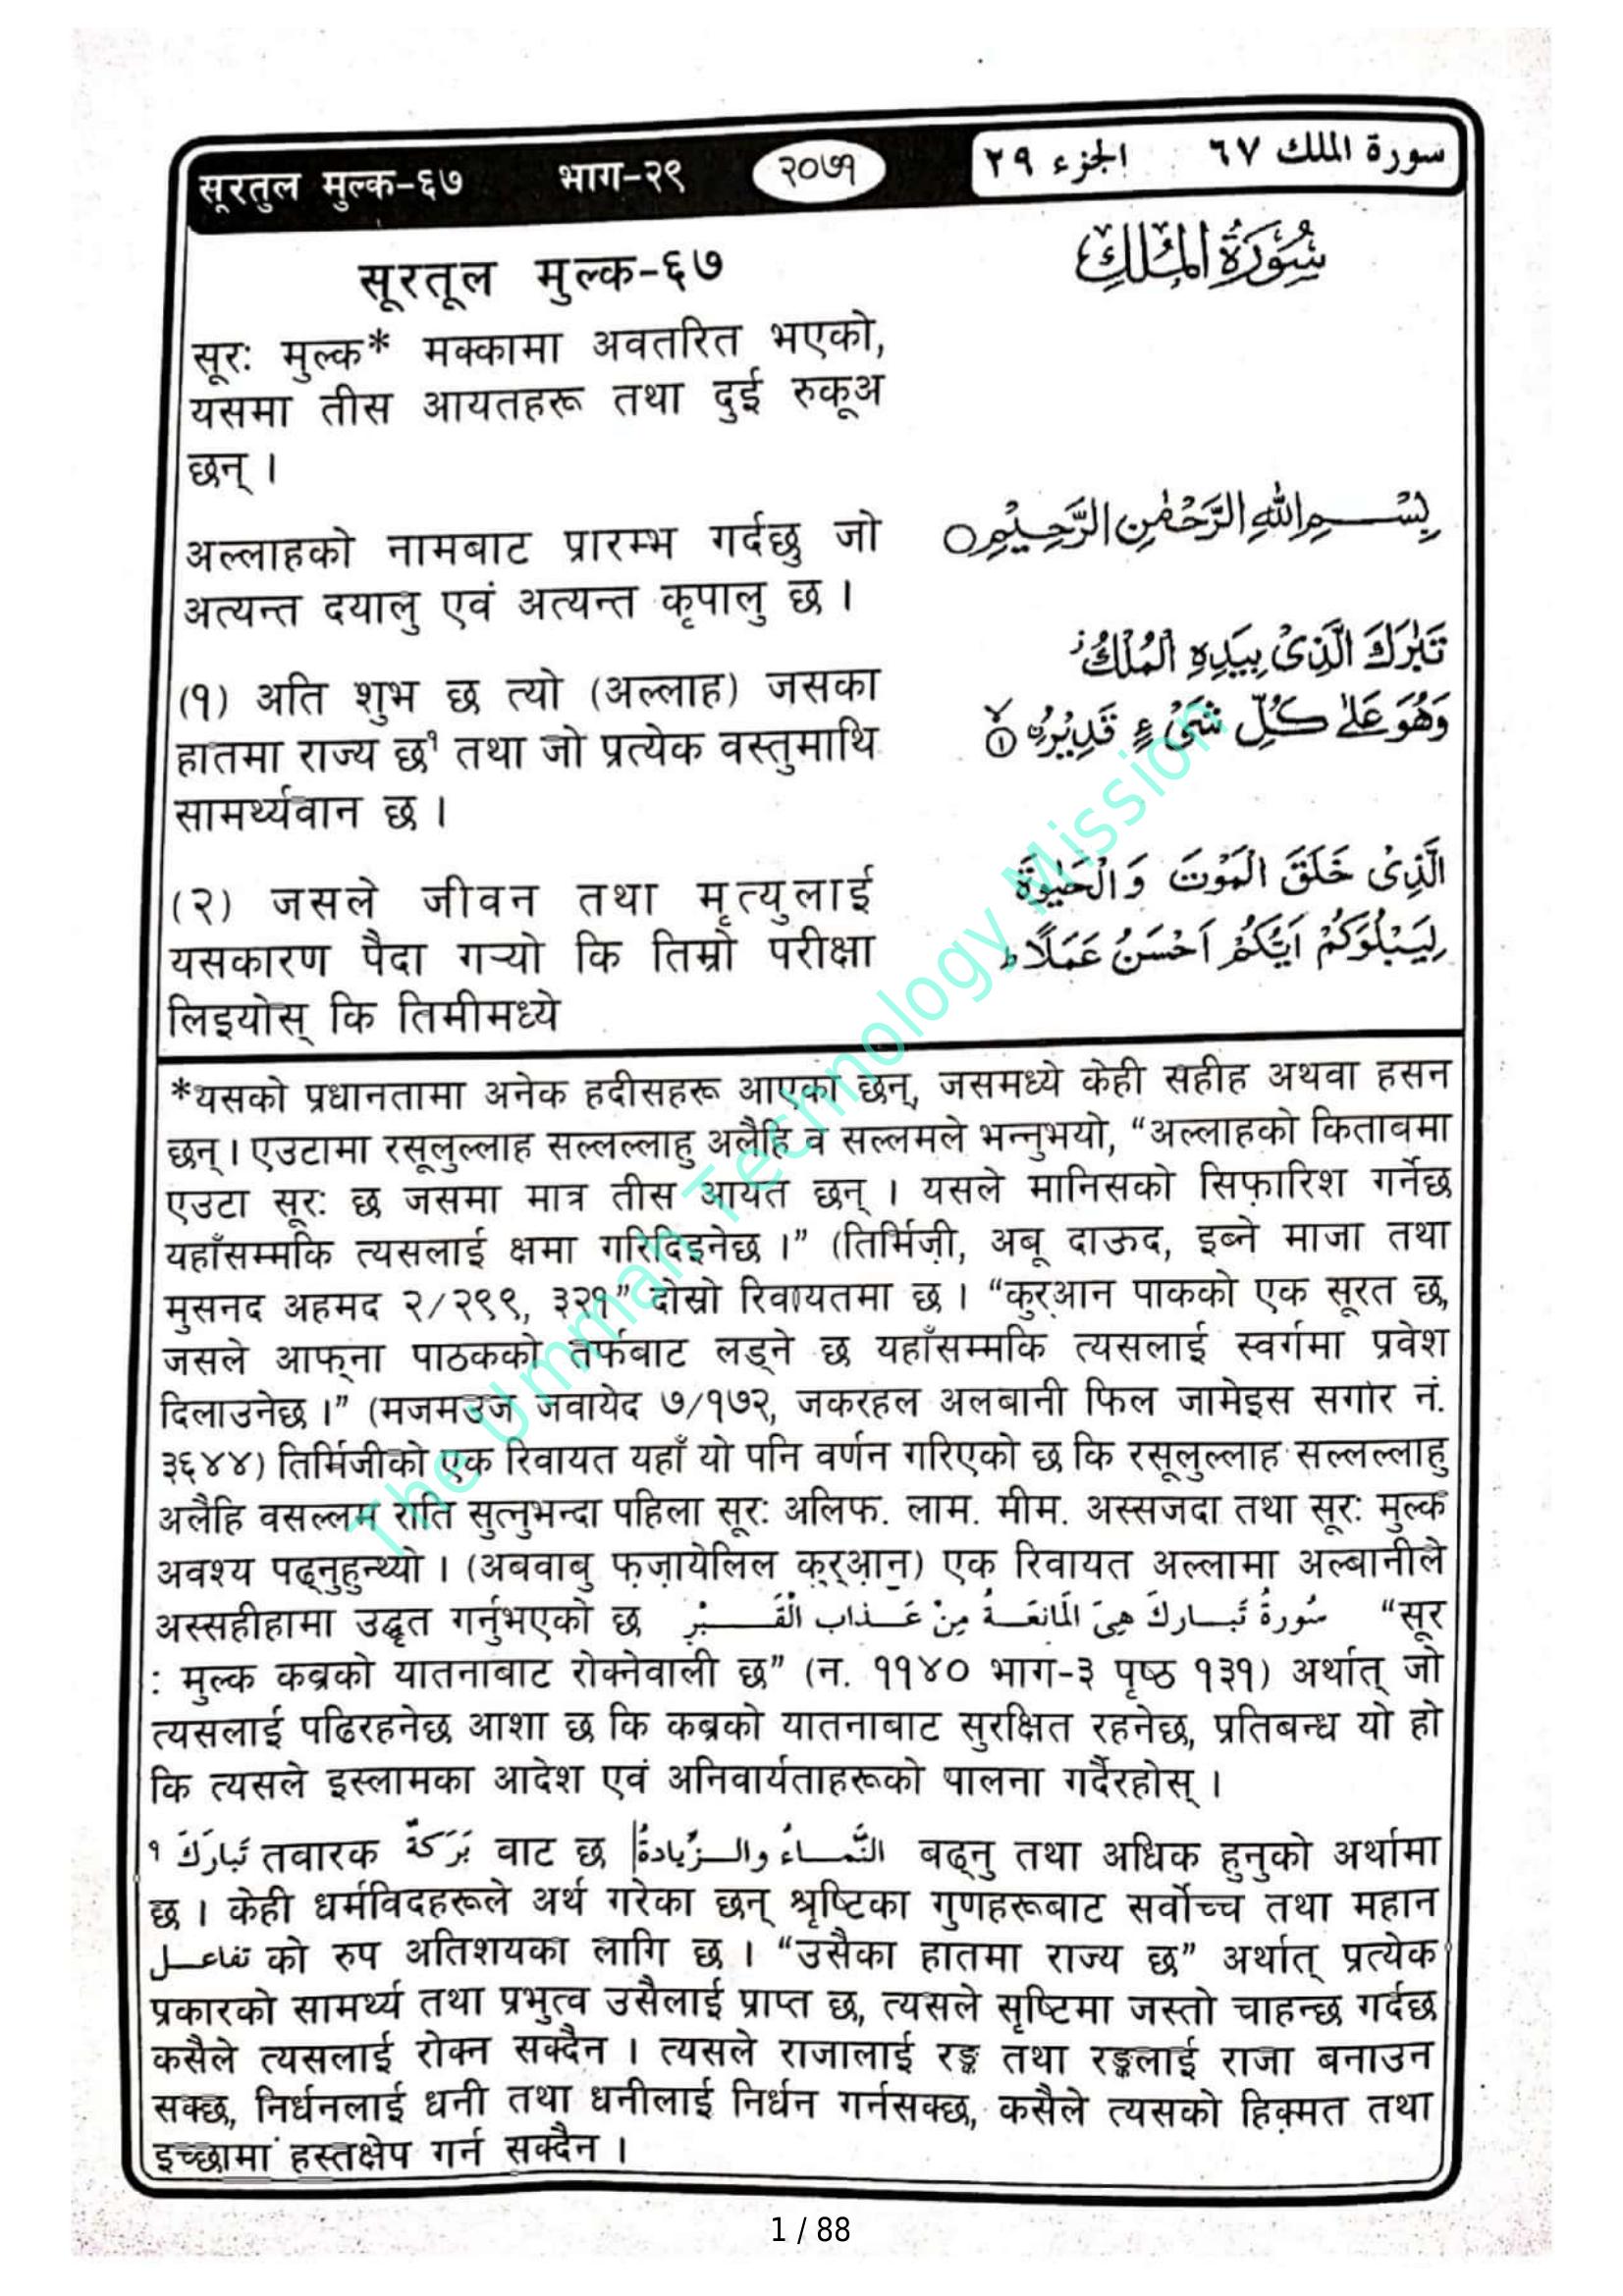 सूरतुल मुल्क-६७ भाग-२९ २०७१ الجزء ٢٩ سورة الملك ٦٧
सूरतूल मुल्क-६७
سُوْرَةُ الْمُلْكِ
सूर: मुल्क* मक्कामा अवतरित भएको,
यसमा तीस आयतहरू तथा दुई रुकूअ
छन् ।
بِسْــــمِ اللهِ الرَّحْمٰنِ الرَّحِيْمِ ○
अल्लाहको नामबाट प्रारम्भ गर्दछु जो
अत्यन्त दयालु एवं अत्यन्त कृपालु छ ।
تَبٰرَكَ الَّذِىْ بِيَدِهِ الْمُلْكُ ز
وَهُوَ عَلٰى كُلِّ شَىْءٍ قَدِيْرُۨ ۙ ١
(१) अति शुभ छ त्यो (अल्लाह) जसका
हातमा राज्य छ१ तथा जो प्रत्येक वस्तुमाथि
सामर्थ्यवान छ ।
الَّذِىْ خَلَقَ الْمَوْتَ وَالْحَيٰوةَ
لِيَبْلُوَكُمْ اَيُّكُمْ اَحْسَنُ عَمَلًا ؕ
(२) जसले जीवन तथा मृत्युलाई
यसकारण पैदा गर्‍यो कि तिम्रो परीक्षा
लिइयोस् कि तिमीमध्ये
*यसको प्रधानतामा अनेक हदीसहरू आएका छन्, जसमध्ये केही सहीह अथवा हसन
छन् । एउटामा रसूलुल्लाह सल्लल्लाहु अलैहि व सल्लमले भन्नुभयो, “अल्लाहको किताबमा
एउटा सूर: छ जसमा मात्र तीस आयत छन् । यसले मानिसको सिफ़ारिश गर्नेछ
यहाँसम्मकि त्यसलाई क्षमा गरिदिइनेछ ।” (तिर्मिज़ी, अबू दाऊद, इब्ने माजा तथा
मुसनद अहमद २/२९९, ३२१” दोस्रो रिवायतमा छ । “कुर्‌आन पाकको एक सूरत छ,
जसले आफ्ना पाठकको तर्फबाट लड्ने छ यहाँसम्मकि त्यसलाई स्वर्गमा प्रवेश
दिलाउनेछ ।” (मजमउज जवायेद ७/१७२, जकरहल अलबानी फिल जामेइस सगीर नं.
३६४४) तिर्मिजीको एक रिवायत यहाँ यो पनि वर्णन गरिएको छ कि रसूलुल्लाह सल्लल्लाहु
अलैहि वसल्लम राति सुत्नुभन्दा पहिला सूर: अलिफ. लाम. मीम. अस्सजदा तथा सूर: मुल्क
अवश्य पढ्नुहुन्थ्यो । (अबवाबु फ़ज़ायेलिल क़ुर्‌आन) एक रिवायत अल्लामा अल्बानीले
अस्सहीहामा उद्धृत गर्नुभएको छ سُورةُ تَبــارك هِيَ الْمَانعَــةُ مِنْ عَــذاب الْقَـــبْرِ “सूर
: मुल्क कब्रको यातनाबाट रोक्नेवाली छ” (न. ११४० भाग-३ पृष्ठ १३१) अर्थात् जो
त्यसलाई पढिरहनेछ आशा छ कि कब्रको यातनाबाट सुरक्षित रहनेछ, प्रतिबन्ध यो हो
कि त्यसले इस्लामका आदेश एवं अनिवार्यताहरूको पालना गर्दैरहोस् ।
१ تَبارَكَ तबारक بَرَكَةٌ वाट छ النَّمــاءُ والــزِّيادةُ बढ्नु तथा अधिक हुनुको अर्थामा
छ । केही धर्मविदहरूले अर्थ गरेका छन् श्रृष्टिका गुणहरूबाट सर्वोच्च तथा महान
تفاعــل को रुप अतिशयका लागि छ । “उसैका हातमा राज्य छ” अर्थात् प्रत्येक
प्रकारको सामर्थ्य तथा प्रभुत्व उसैलाई प्राप्त छ, त्यसले सृष्टिमा जस्तो चाहन्छ गर्दछ
कसैले त्यसलाई रोक्न सक्दैन । त्यसले राजालाई रङ्क तथा रङ्कलाई राजा बनाउन
सक्छ, निर्धनलाई धनी तथा धनीलाई निर्धन गर्नसक्छ, कसैले त्यसको हिक़्मत तथा
इच्छामा हस्तक्षेप गर्न सक्दैन ।
The Ummah Technology Mission
1 / 88